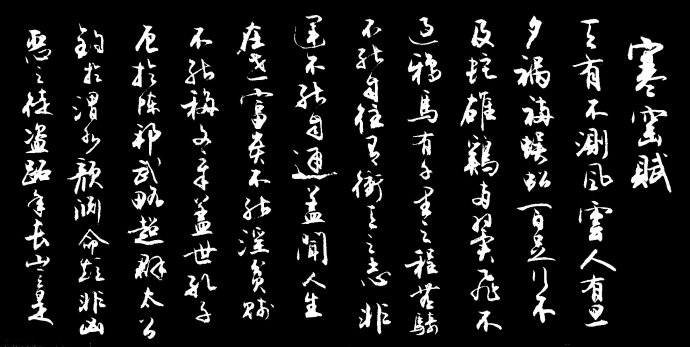 寒窑賦
天有不測風雲人有旦
夕禍福蜈蚣百足行不
及蛇雄鷄兩翼飛不
過鴉馬有千里之程無騎
不能自往人有衝天之志非
運不能自通蓋聞人生
在世富貴不能淫貧賤
不能移文章蓋世孔子
厄於陳邦武略超群太公
釣於渭水顏淵命短非凶
惡之徒盜跖年長豈是